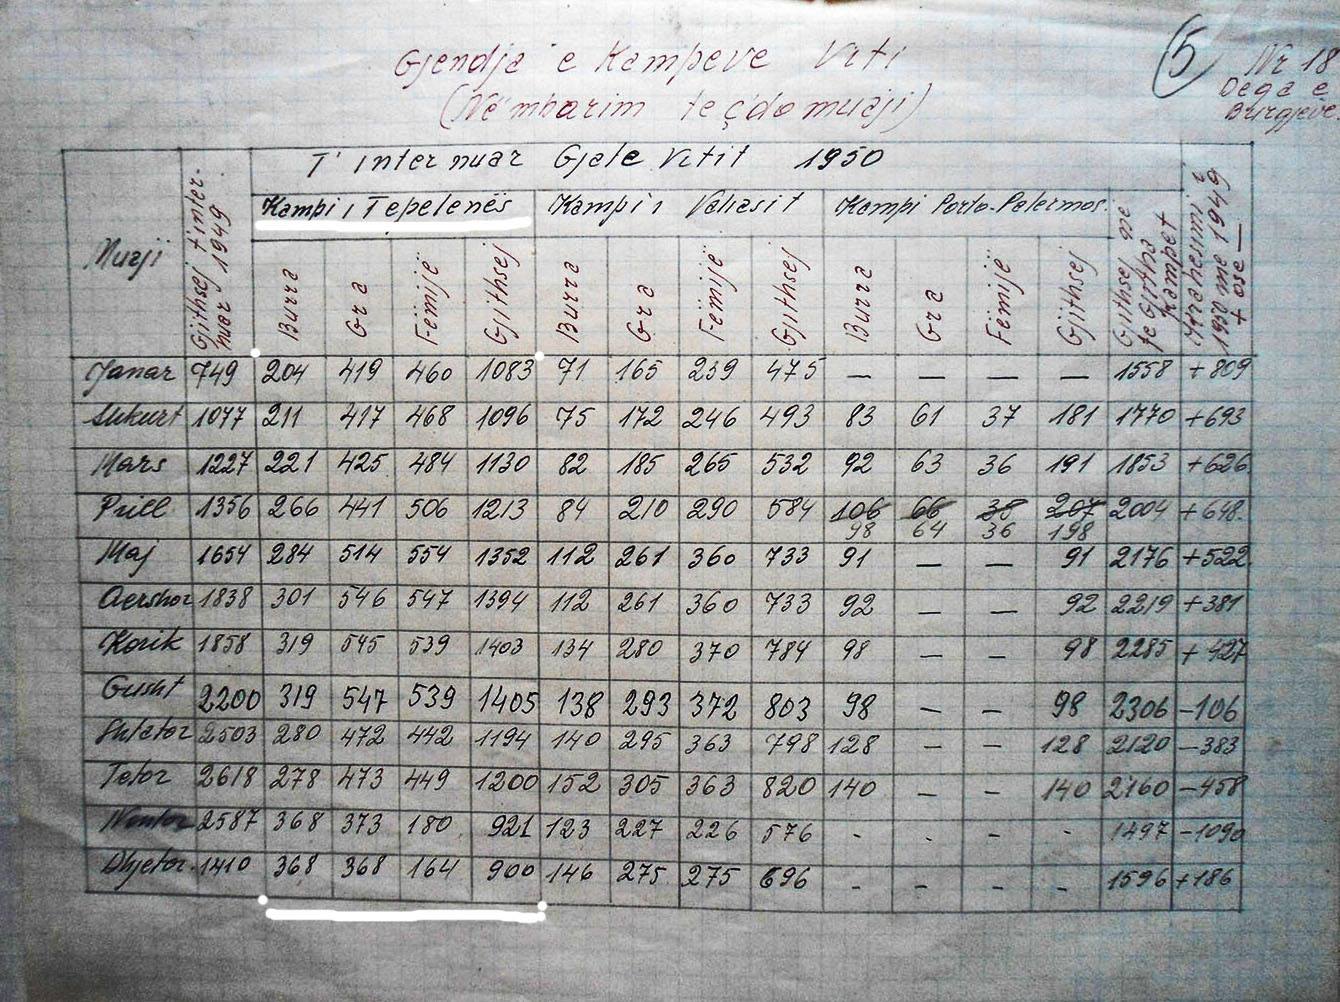 Gjendja e Kampeve Viti
(Në mbarim te çdo muaji)
5
Nr 18
Dega e
Burgjeve.
T'Internuar Gjate Vitit 1950
Muaji
Gjithsej t'inter-
nuar 1949
Kampi i Tepelenës
Kampi i
Kampi Porto-Palermos.
Gjithsej me
te gjitha
Kampet
1950 me 1949
+ ose —
Burra Gra Fëmijë Gjithsej Burra Gra Fëmijë Gjithsej Burra Gra Fëmijë Gjithsej
Janar 749 204 419 460 1083 71 165 239 475 — — — — 1558 +809
Shkurt 1077 211 417 468 1096 75 172 246 493 83 61 37 181 1770 +693
Mars 1227 221 425 484 1130 82 185 265 532 92 63 36 191 1853 +626
Prill 1356 266 441 506 1213 84 210 290 584 106 66 38 207 2004 +648.
98 64 36 198
Maj 1654 284 514 554 1352 112 261 360 733 91 — — 91 2176 +522
Qershor 1838 301 546 547 1394 112 261 360 733 92 — — 92 2219 +381
Korik 1858 319 545 539 1403 134 280 370 784 98 — — 98 2285 +427
Gusht 2200 319 547 539 1405 138 293 372 803 98 — — 98 2306 -106
Shtator 2503 280 472 442 1194 140 295 363 798 128 — — 128 2120 -383
Tetor 2618 278 473 449 1200 152 305 363 820 140 — — 140 2160 -458
Nentor 2587 368 373 180 921 123 227 226 576 - - - - 1497 -1090
Dhjetor 1410 368 368 164 900 146 275 275 696 - - - - 1596 +186